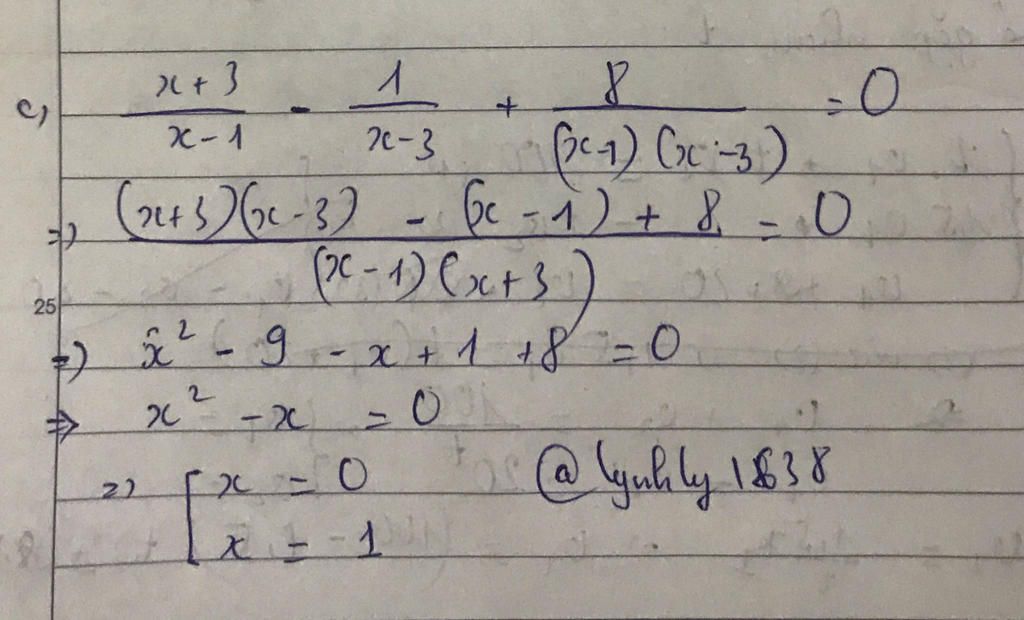 c, (x+3)/(x-1) - 1/(x-3) + 8/((x-1)(x-3)) = 0
=) ((x+3)(x-3) - (x-1) + 8)/((x-1)(x+3)) = 0
25
=) x² - 9 - x + 1 + 8 = 0
=> x² - x = 0
=) [ x = 0 @lynhly1638
x = -1